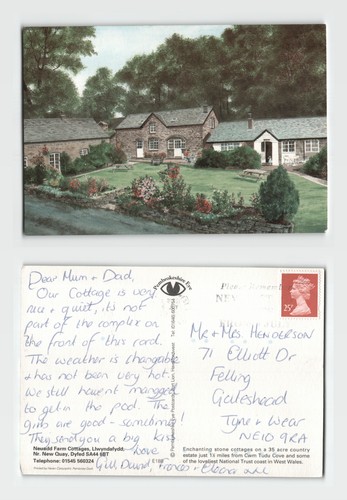 Dear Mum + Dad,
Our Cottage is very
nice + quiet, it's not
part of the complex on
the front of this card.
The weather is changable
+ has not been very hot.
We still havent managed
to get in the pool. The
girls are good - sometimes!
They send you a big kiss
love
Gill, David, Frances + Eleena
Neuadd Farm Cottages, Llwyndafydd,
Nr. New Quay, Dyfed SA44 6BT
Telephone: 01545 560324
E168
Pembrokeshire Eye
25p
Mr + Mrs HENDERSON
71 Elliott Dr
Felling
Gateshead
Tyne + Wear
NE10 9RA
Enchanting stone cottages on a 35 acre country
estate just 1½ miles from Cwm Tudu Cove and some
of the loveliest National Trust coast in West Wales.